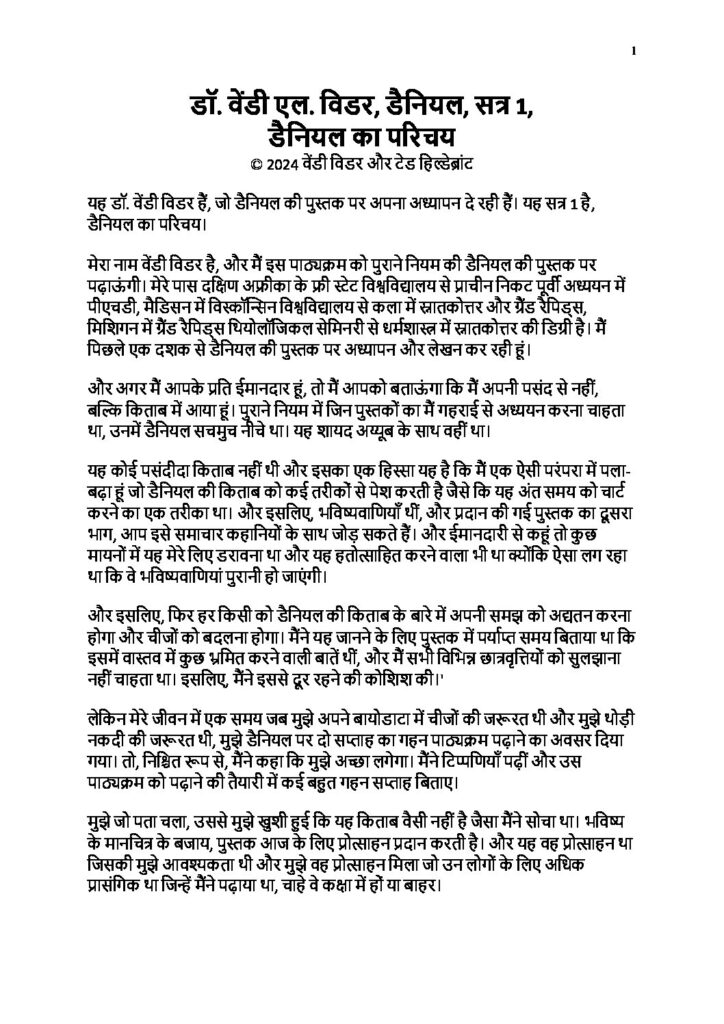 1
डॉ. वेंडी एल. विडर, डैनियल, सत्र 1,
डैनियल का परिचय
© 2024 वेंडी विडर और टेड हिल्डेब्रांट
यह डॉ. वेंडी विडर हैं, जो डैनियल की पुस्तक पर अपना अध्यापन दे रही हैं। यह सत्र 1 है,
डैनियल का परिचय।
मेरा नाम वेंडी विडर है, और मैं इस पाठ्यक्रम को पुराने नियम की डैनियल की पुस्तक पर
पढ़ाऊंगी। मेरे पास दक्षिण अफ्रीका के फ्री स्टेट विश्वविद्यालय से प्राचीन निकट पूर्वी अध्ययन में
पीएचडी, मैडिसन में विस्कॉन्सिन विश्वविद्यालय से कला में स्नातकोत्तर और ग्रैंड रैपिड्स,
मिशिगन में ग्रैंड रैपिड्स थियोलॉजिकल सेमिनरी से धर्मशास्त्र में स्नातकोत्तर की डिग्री है। मैं
पिछले एक दशक से डैनियल की पुस्तक पर अध्यापन और लेखन कर रही हूं।
और अगर मैं आपके प्रति ईमानदार हूं, तो मैं आपको बताऊंगा कि मैं अपनी पसंद से नहीं,
बल्कि किताब में आया हूं। पुराने नियम में जिन पुस्तकों का मैं गहराई से अध्ययन करना चाहता
था, उनमें डैनियल सचमुच नीचे था। यह शायद अय्यूब के साथ वहीं था।
यह कोई पसंदीदा किताब नहीं थी और इसका एक हिस्सा यह है कि मैं एक ऐसी परंपरा में पला-
बढ़ा हूं जो डैनियल की किताब को कई तरीकों से पेश करती है जैसे कि यह अंत समय को चार्ट
करने का एक तरीका था। और इसलिए, भविष्यवाणियाँ थीं, और प्रदान की गई पुस्तक का दूसरा
भाग, आप इसे समाचार कहानियों के साथ जोड़ सकते हैं। और ईमानदारी से कहूं तो कुछ
मायनों में यह मेरे लिए डरावना था और यह हतोत्साहित करने वाला भी था क्योंकि ऐसा लग रहा
था कि वे भविष्यवाणियां पुरानी हो जाएंगी।
और इसलिए, फिर हर किसी को डैनियल की किताब के बारे में अपनी समझ को अद्यतन करना
होगा और चीजों को बदलना होगा। मैंने यह जानने के लिए पुस्तक में पर्याप्त समय बिताया था कि
इसमें वास्तव में कुछ भ्रमित करने वाली बातें थीं, और मैं सभी विभिन्न छात्रवृत्तियों को सुलझाना
नहीं चाहता था। इसलिए, मैंने इससे दूर रहने की कोशिश की।'
लेकिन मेरे जीवन में एक समय जब मुझे अपने बायोडाटा में चीजों की जरूरत थी और मुझे थोड़ी
नकदी की जरूरत थी, मुझे डैनियल पर दो सप्ताह का गहन पाठ्यक्रम पढ़ाने का अवसर दिया
गया। तो, निश्चित रूप से, मैंने कहा कि मुझे अच्छा लगेगा। मैंने टिप्पणियाँ पढ़ीं और उस
पाठ्यक्रम को पढ़ाने की तैयारी में कई बहुत गहन सप्ताह बिताए।
मुझे जो पता चला, उससे मुझे खुशी हुई कि यह किताब वैसी नहीं है जैसा मैंने सोचा था। भविष्य
के मानचित्र के बजाय, पुस्तक आज के लिए प्रोत्साहन प्रदान करती है। और यह वह प्रोत्साहन था
जिसकी मुझे आवश्यकता थी और मुझे वह प्रोत्साहन मिला जो उन लोगों के लिए अधिक
प्रासंगिक था जिन्हें मैंने पढ़ाया था, चाहे वे कक्षा में हों या बाहर।